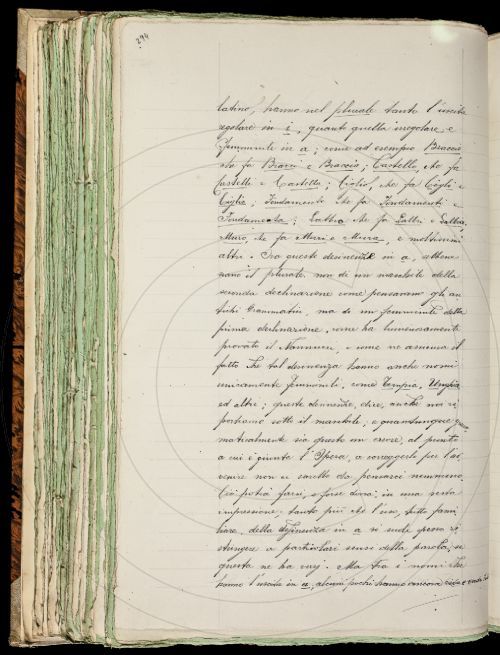 294
latino, hanno nel plurale tanto l'uscita
regolare in i, quanto quella irregolare, e
femminile in a; come ad esempio Braccio
che fa Bracci e Braccia; Castello, che fa
Castelli e Castella; Ciglio, che fa Cigli e
Ciglia; Fondamento che fa Fondamenti e
Fondamenta; Labbro che fa Labbri e Labbra,
Muro, che fa Muri e Mura, e moltissimi
altri. Ora queste desinenze in a, sebbene
sieno il plurale, non di un maschile della
seconda declinazione come pensavano gli an
tichi Grammatici, ma di un femminile della
prima declinazione, come ha luminosamente
provato il Nannucci, e come ne assicura il
fatto che tal desinenza hanno anche nomi
unicamente femminili, come Tempia, Unghia
ed altri; queste desinenze, dico, anche noi ri
portiamo sotto il maschile; e quantunque gram
maticalmente sia questo un errore, al punto
a cui è giunta l'Opera, a correggerlo per l'av
venire non ci sarebbe da pensarci nemmeno.
Ciò potrà farsi, e forse dovrà, in una sesta
impressione; tanto più che l'uso, fatto fami
liare, della desinenza in a si suole spesso re
stringere a particolari sensi della parola, se
questa ne ha varj. Ma tra i nomi che
hanno l'uscita in a, alcuni pochi hanno ancora